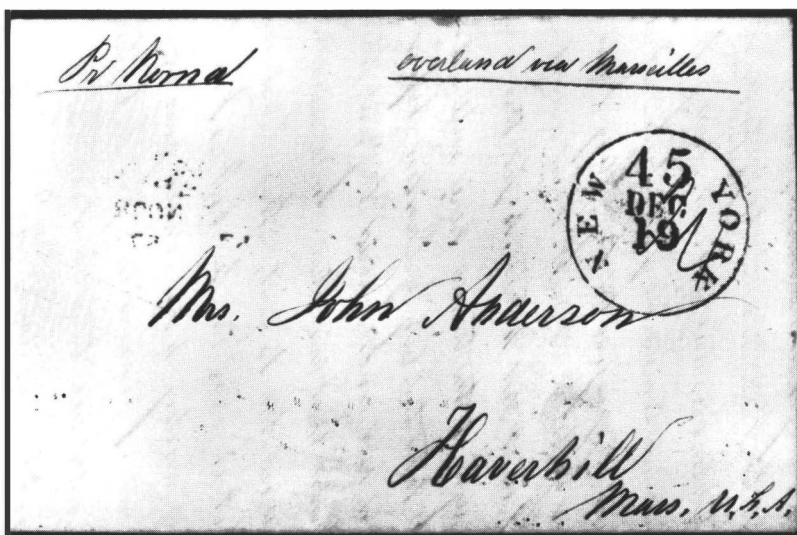 Pr Norna overland via Marseilles
NEW YORK
45
DEC
19
Mrs. John Anderson
Haverhill
Mass. U.S.A.